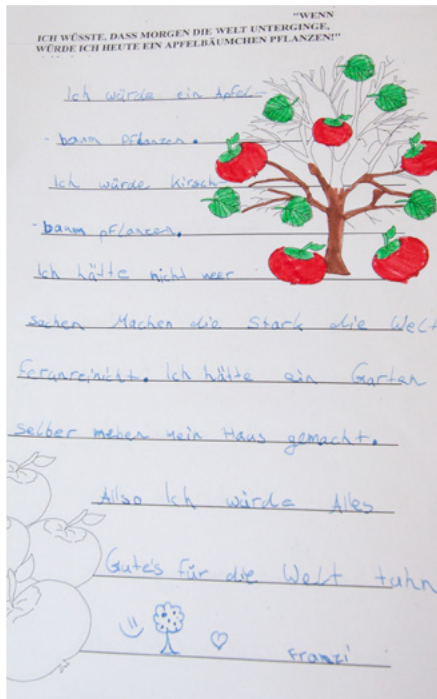 "WENN
ICH WÜSSTE, DASS MORGEN DIE WELT UNTERGINGE,
WÜRDE ICH HEUTE EIN APFELBÄUMCHEN PFLANZEN!"
Ich würde ein Apfel-
-baum pflanzen.
Ich würde Kirsch-
-baum pflanzen.
Ich hätte nicht meer
sachen Machen die Stark die Welt
feranreinicht. Ich hätte ein Garten
selber meben mein Haus gemacht.
Allso Ich würde Alles
Gutes für die Welt tuhn
Franzi